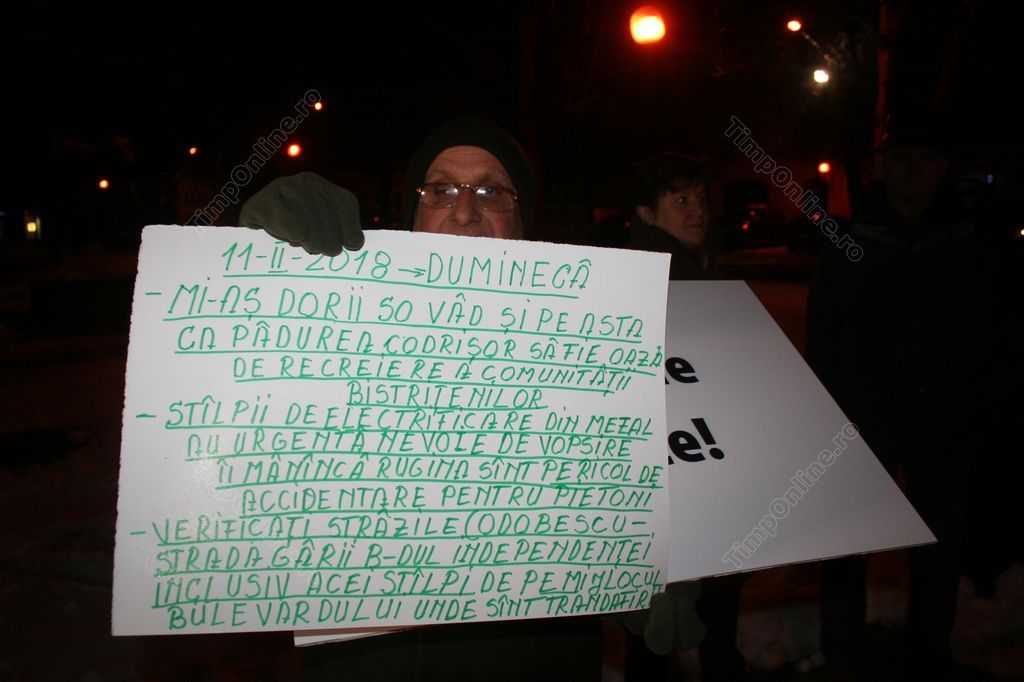 11-II-2018 → DUMINECĂ
- MI-AȘ DORII SO VÂD ȘI PE ASTA
CA PÂDUREA CODRIȘOR SÂ FIE OAZĂ
DE RECREIERE A COMUNITÂȚII
BISTRIȚENILOR
- STÎLPII DE ELECTRIFICARE DIN METAL
AU URGENTĂ NEVOIE DE VOPSIRE
ÎI MÂNÎNCĂ RUGINA SÎNT PERICOL DE
ACCIDENTARE PENTRU PIETONI
- VERIFICAȚI STRĂZILE (ODOBESCU -
STRADA GÂRII B-DUL INDEPENDENȚEI
INCLUSIV ACEI STÎLPI DE PE MIJLOCUL
BULEVARDULUI UNDE SÎNT TRANDAFIRI
Timponline.ro
Timponline.ro
Timponline.ro